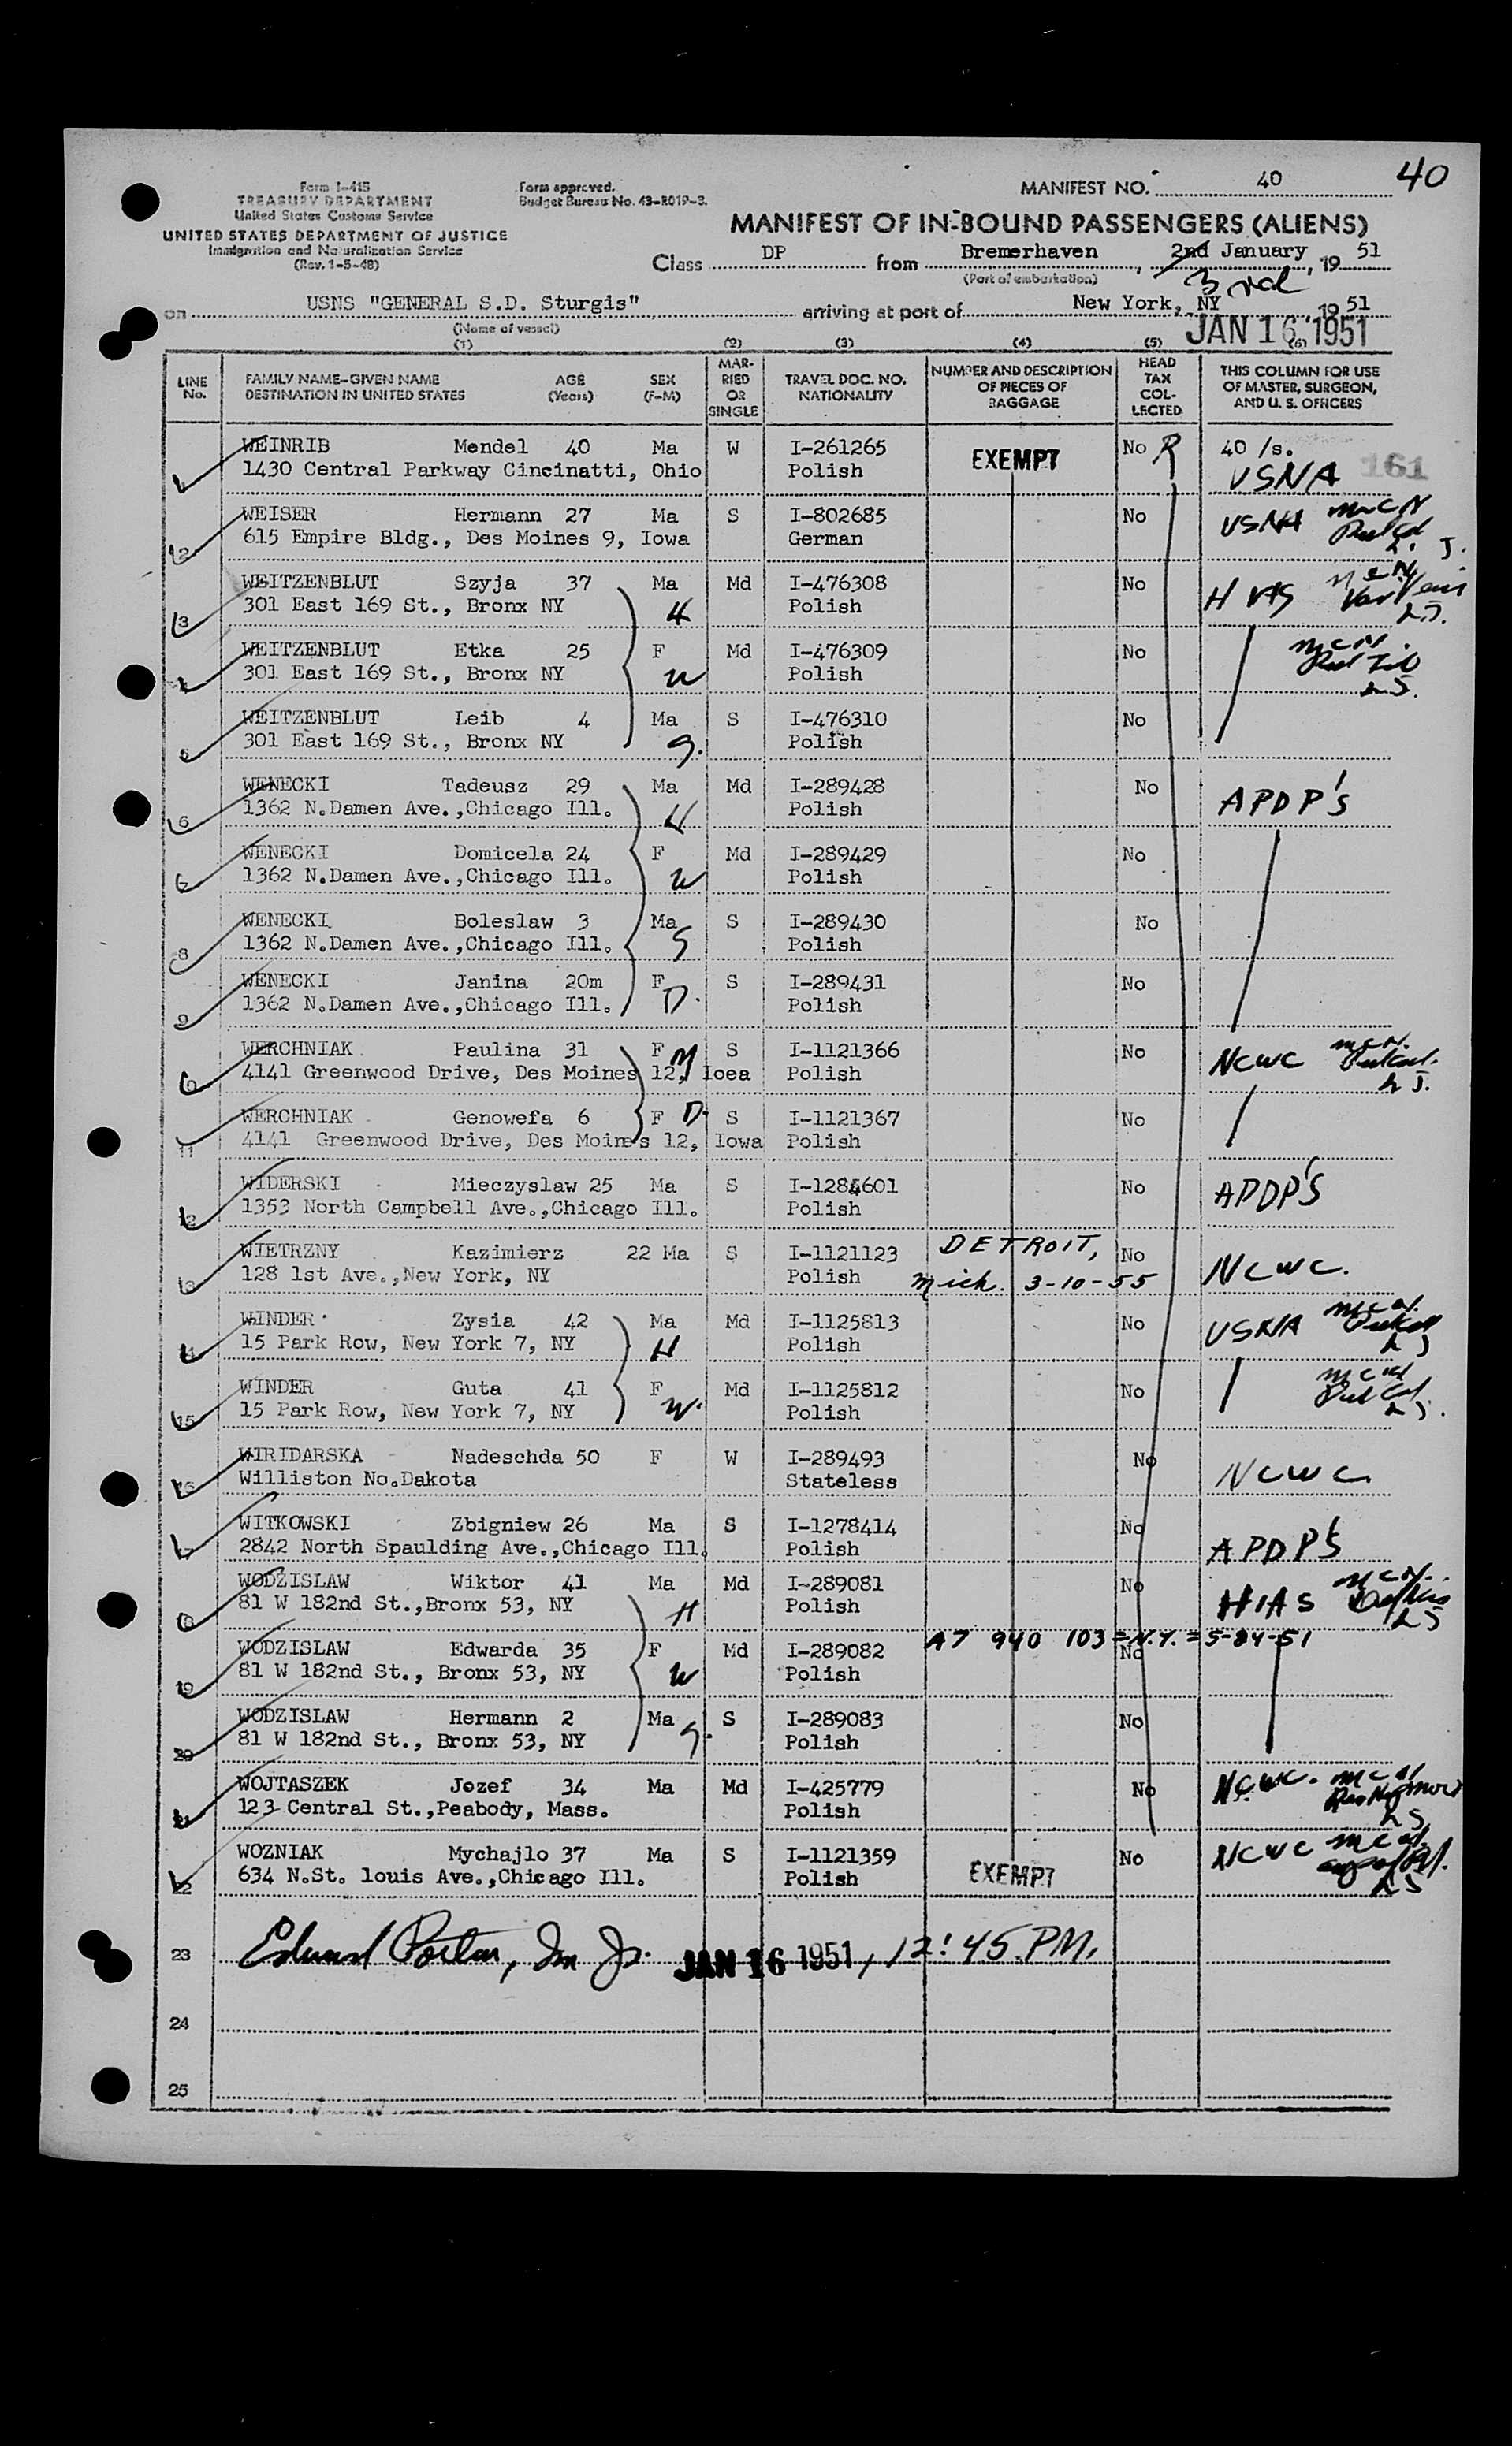 40
Form I-415
TREASURY DEPARTMENT
United States Customs Service
UNITED STATES DEPARTMENT OF JUSTICE
Immigration and Naturalization Service
(Rev. 1-5-48)
Form approved.
Budget Bureau No. 43-R019-3.
MANIFEST NO. 40
MANIFEST OF IN-BOUND PASSENGERS (ALIENS)
Class DP from Bremerhaven, 2nd January, 19 51
(Port of embarkation) 3rd
on USNS "GENERAL S.D. Sturgis" arriving at port of New York, NY 19 51
(Name of vessel) JAN 16 1951
(1) (2) (3) (4) (5) (6)
LINE No. FAMILY NAME-GIVEN NAME DESTINATION IN UNITED STATES AGE (Years) SEX (F-M) MARRIED OR SINGLE TRAVEL DOC. NO. NATIONALITY NUMBER AND DESCRIPTION OF PIECES OF BAGGAGE HEAD TAX COLLECTED THIS COLUMN FOR USE OF MASTER, SURGEON, AND U. S. OFFICERS
1 WEINRIB Mendel 40 Ma W I-261265 EXEMPT No R 40 /s. 161
1430 Central Parkway Cincinatti, Ohio Polish USNA
2 WEISER Hermann 27 Ma S I-802685 No USNA
615 Empire Bldg., Des Moines 9, Iowa German
3 WEITZENBLUT Szyja 37 Ma Md I-476308 No HIAS
301 East 169 St., Bronx NY H Polish
4 WEITZENBLUT Etka 25 F Md I-476309 No
301 East 169 St., Bronx NY W Polish
5 WEITZENBLUT Leib 4 Ma S I-476310 No
301 East 169 St., Bronx NY S. Polish
6 WENECKI Tadeusz 29 Ma Md I-289428 No APDP'S
1362 N.Damen Ave.,Chicago Ill. H Polish
7 WENECKI Domicela 24 F Md I-289429 No
1362 N.Damen Ave.,Chicago Ill. W Polish
8 WENECKI Boleslaw 3 Ma S I-289430 No
1362 N.Damen Ave.,Chicago Ill. S Polish
9 WENECKI Janina 20m F S I-289431 No
1362 N.Damen Ave.,Chicago Ill. D. Polish
10 WERCHNIAK Paulina 31 F M S I-1121366 No NCWC
4141 Greenwood Drive, Des Moines 12, Ioea Polish
11 WERCHNIAK Genowefa 6 F D. S I-1121367 No
4141 Greenwood Drive, Des Moines 12, Iowa Polish
12 WIDERSKI Mieczyslaw 25 Ma S I-1284601 No APDP'S
1353 North Campbell Ave.,Chicago Ill. Polish
13 WIETRZNY Kazimierz 22 Ma S I-1121123 DETROIT, No NCWC.
128 1st Ave.,New York, NY Polish Mich. 3-10-55
14 WINDER Zysia 42 Ma Md I-1125813 No USNA
15 Park Row, New York 7, NY H Polish
15 WINDER Guta 41 F Md I-1125812 No
15 Park Row, New York 7, NY W. Polish
16 WIRIDARSKA Nadeschda 50 F W I-289493 No NCWC.
Williston No.Dakota Stateless
17 WITKOWSKI Zbigniew 26 Ma S I-1278414 No APDP'S
2842 North Spaulding Ave.,Chicago Ill. Polish
18 WODZISLAW Wiktor 41 Ma Md I-289081 No HIAS
81 W 182nd St.,Bronx 53, NY H Polish
19 WODZISLAW Edwarda 35 F Md I-289082 A7 940 103 = N.Y. = 5-24-51 No
81 W 182nd St., Bronx 53, NY W Polish
20 WODZISLAW Hermann 2 Ma S I-289083 No
81 W 182nd St., Bronx 53, NY S. Polish
21 WOJTASZEK Jozef 34 Ma Md I-425779 No NCWC.
123 Central St.,Peabody, Mass. Polish
22 WOZNIAK Mychajlo 37 Ma S I-1121359 No NCWC
634 N.St. louis Ave.,Chicago Ill. Polish EXEMPT
23 JAN 16 1951, 12:45 PM.
24
25